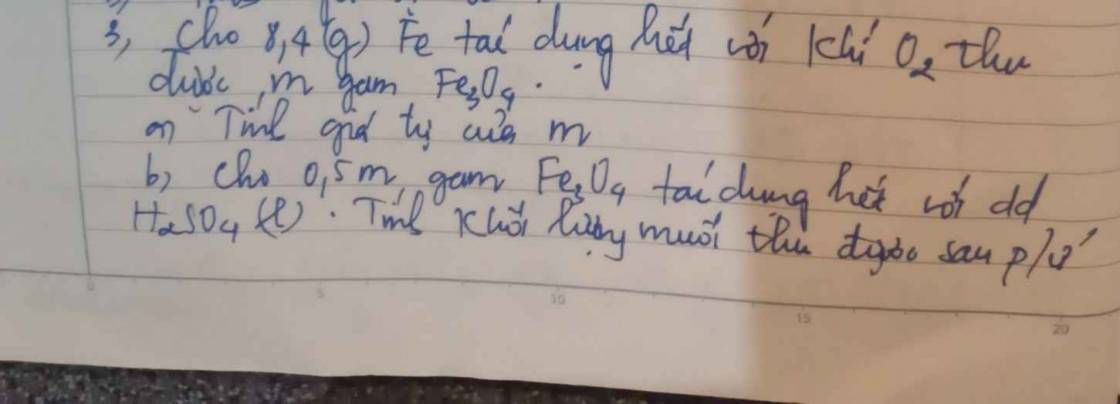 3, Cho 8,4 (g) Fe tác dụng hết với khí O2 thu
được m gam Fe3O4.
a) Tính giá trị của m
b) Cho 0,5m gam Fe3O4 tác dụng hết với dd
H2SO4 (l). Tính khối lượng muối thu được sau p/ứ
0 5 10 15 20